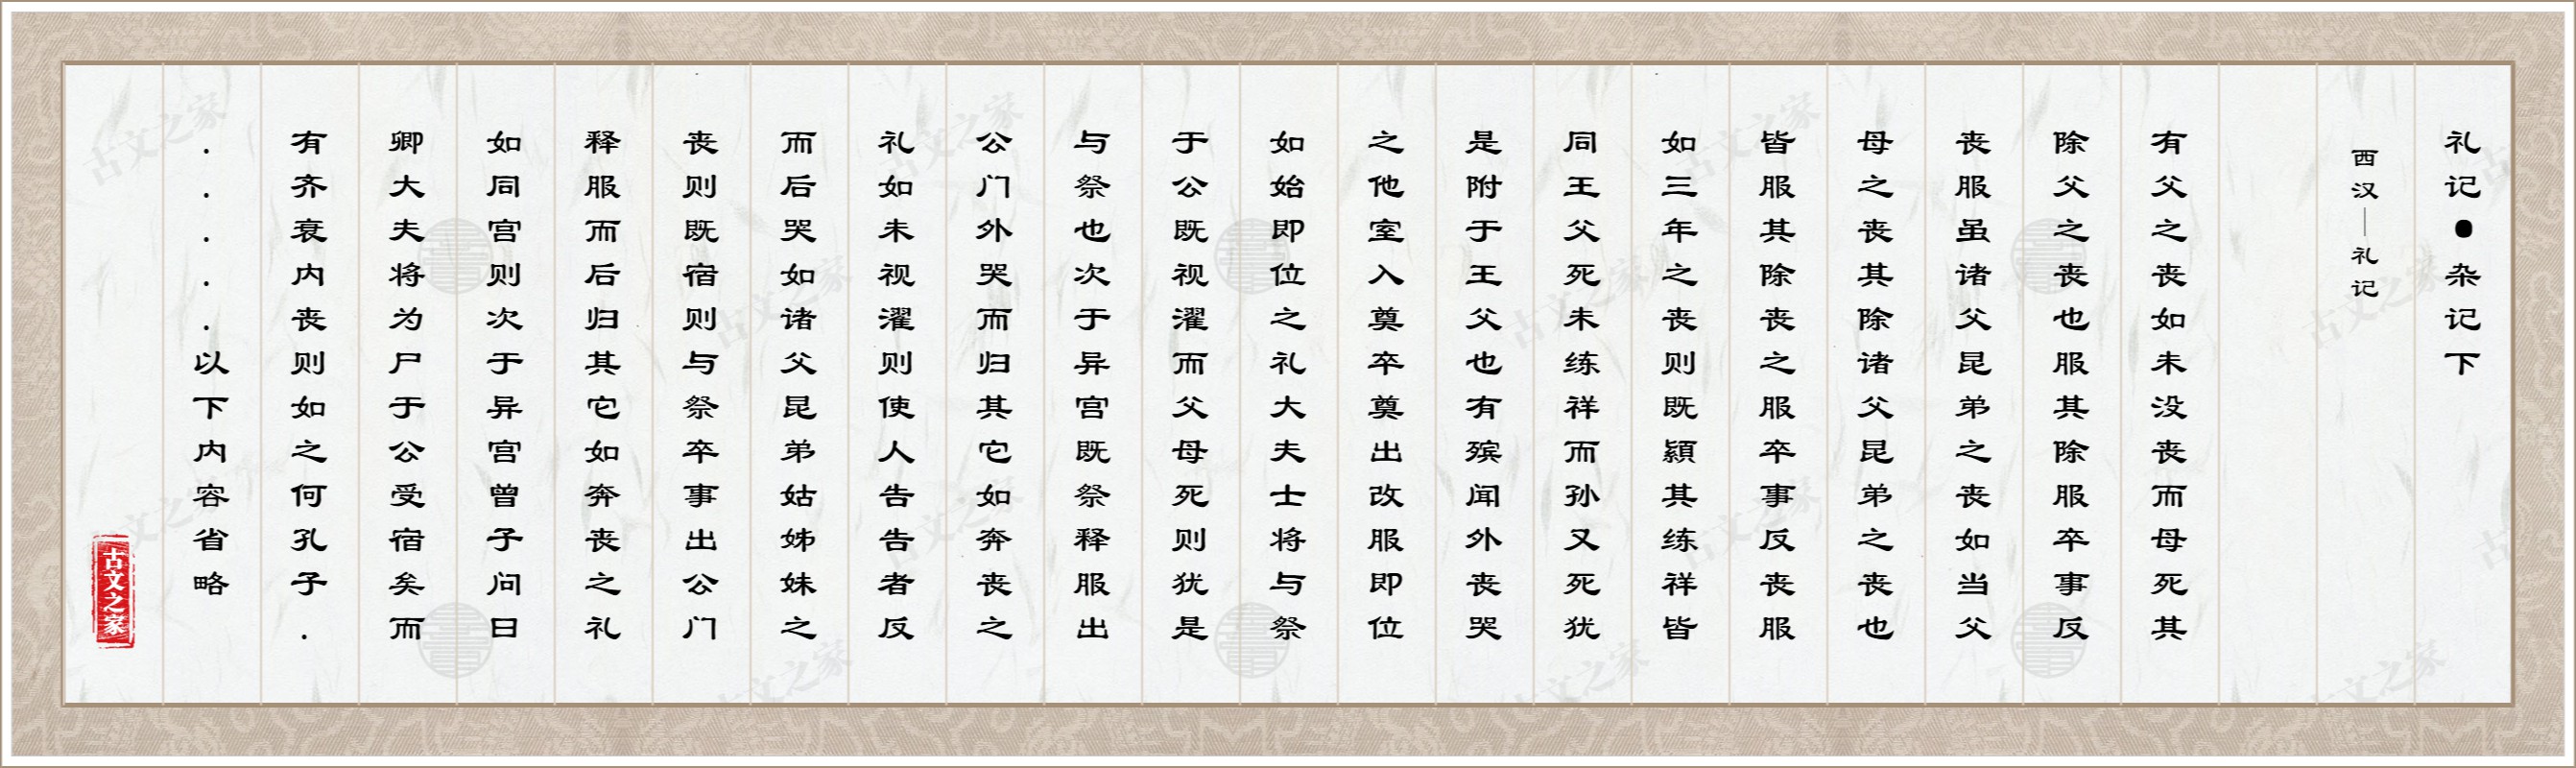 礼记●杂记下
西汉｜礼记
有父之丧如未没丧而母死其
除父之丧也服其除服卒事反
丧服虽诸父昆弟之丧如当父
母之丧其除诸父昆弟之丧也
皆服其除丧之服卒事反丧服
如三年之丧则既顈其练祥皆
同王父死未练祥而孙又死犹
是附于王父也有殡闻外丧哭
之他室入奠卒奠出改服即位
如始即位之礼大夫士将与祭
于公既视濯而父母死则犹是
与祭也次于异宫既祭释服出
公门外哭而归其它如奔丧之
礼如未视濯则使人告告者反
而后哭如诸父昆弟姑姊妹之
丧则既宿则与祭卒事出公门
释服而后归其它如奔丧之礼
如同宫则次于异宫曾子问曰
卿大夫将为尸于公受宿矣而
有齐衰内丧则如之何孔子.
.....以下内容省略
古文之家